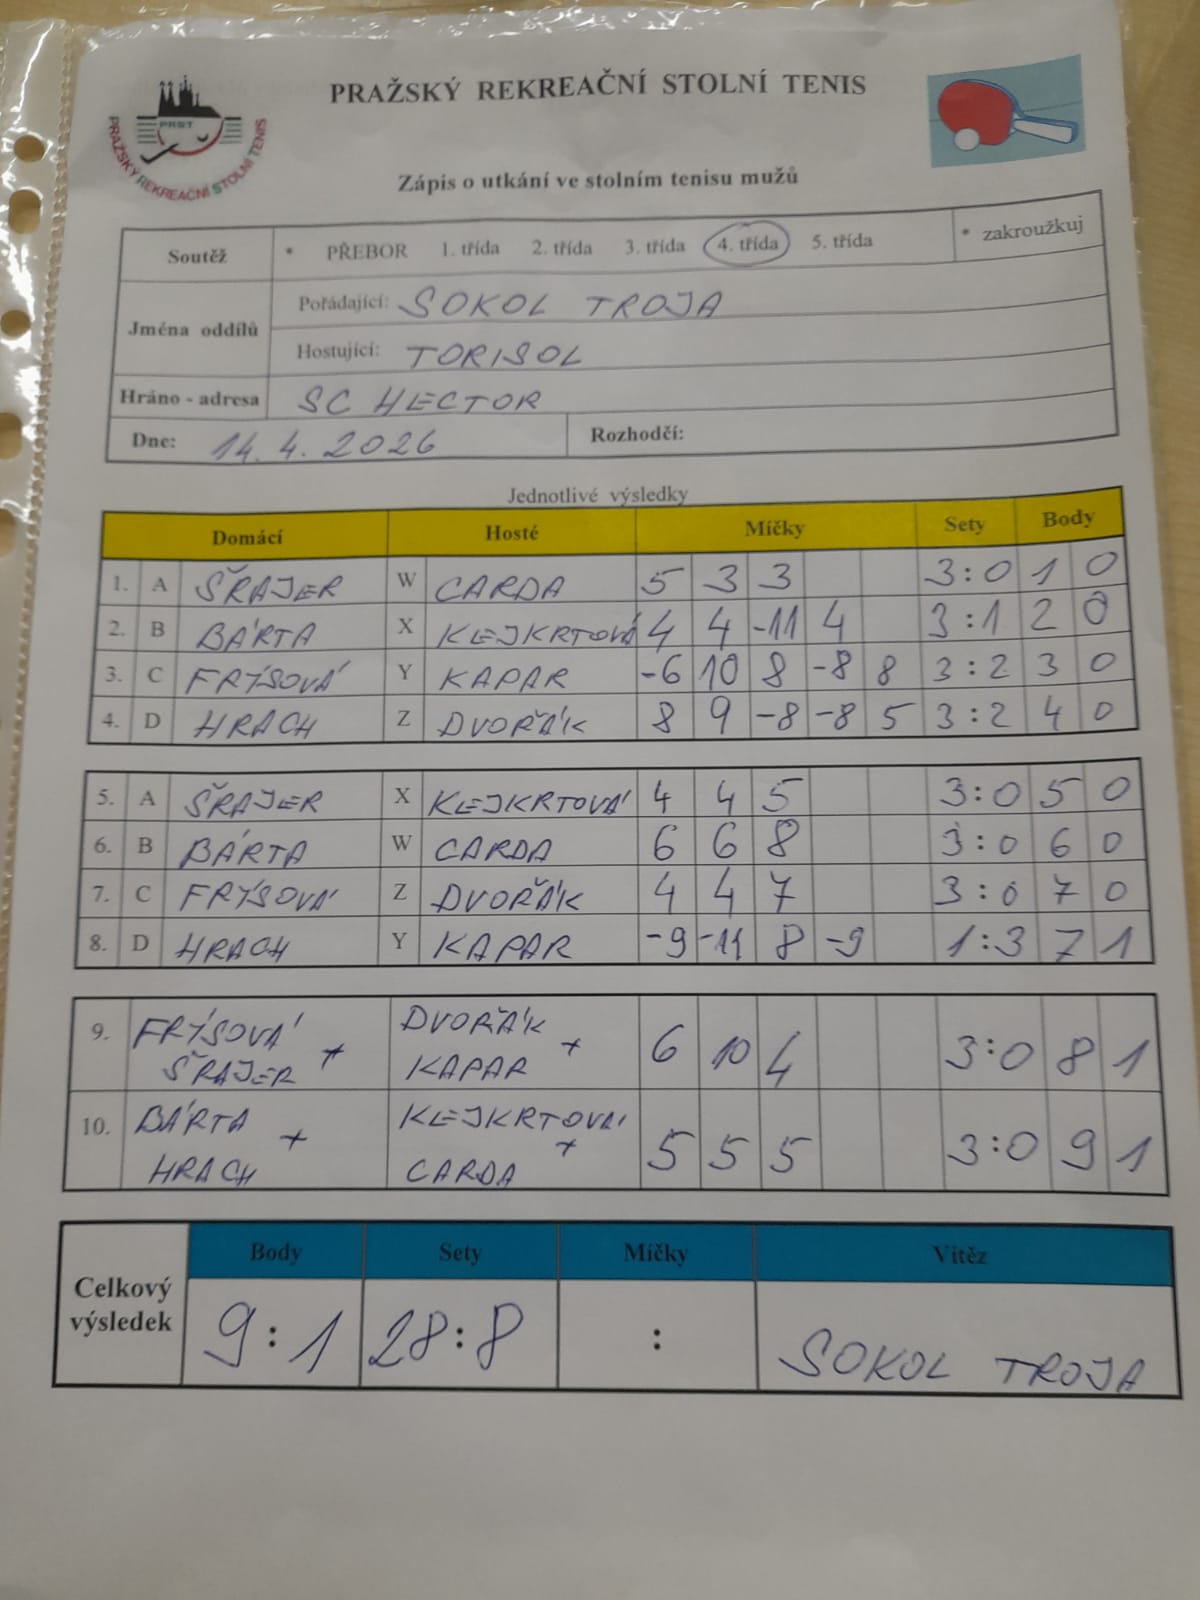 PRAŽSKÝ REKREAČNÍ STOLNÍ TENIS
PRST
PRAŽSKÝ REKREAČNÍ STOLNÍ TENIS
Zápis o utkání ve stolním tenisu mužů
Soutěž * PŘEBOR 1. třída 2. třída 3. třída 4. třída 5. třída * zakroužkuj
Jména oddílů
Pořádající: SOKOL TROJA
Hostující: TORISOL
Hráno - adresa SC HECTOR
Dne: 14. 4. 2026 Rozhodčí:
Jednotlivé výsledky
Domácí Hosté Míčky Sety Body
1. A ŠRAJER W CARDA 5 3 3 3:0 1 0
2. B BÁRTA X KLEJKRTOVÁ 4 4 -11 4 3:1 2 0
3. C FRÝSOVÁ Y KAPAR -6 10 8 -8 8 3:2 3 0
4. D HRACH Z DVOŘÁK 8 9 -8 -8 5 3:2 4 0
5. A ŠRAJER X KLEJKRTOVÁ 4 4 5 3:0 5 0
6. B BÁRTA W CARDA 6 6 8 3:0 6 0
7. C FRÝSOVÁ Z DVOŘÁK 4 4 7 3:0 7 0
8. D HRACH Y KAPAR -9 -11 8 -9 1:3 7 1
9. FRÝSOVÁ + ŠRAJER DVOŘÁK + KAPAR 6 10 4 3:0 8 1
10. BÁRTA + HRACH KLEJKRTOVÁ + CARDA 5 5 5 3:0 9 1
Celkový výsledek
Body Sety Míčky Vítěz
9:1 28:8 : SOKOL TROJA